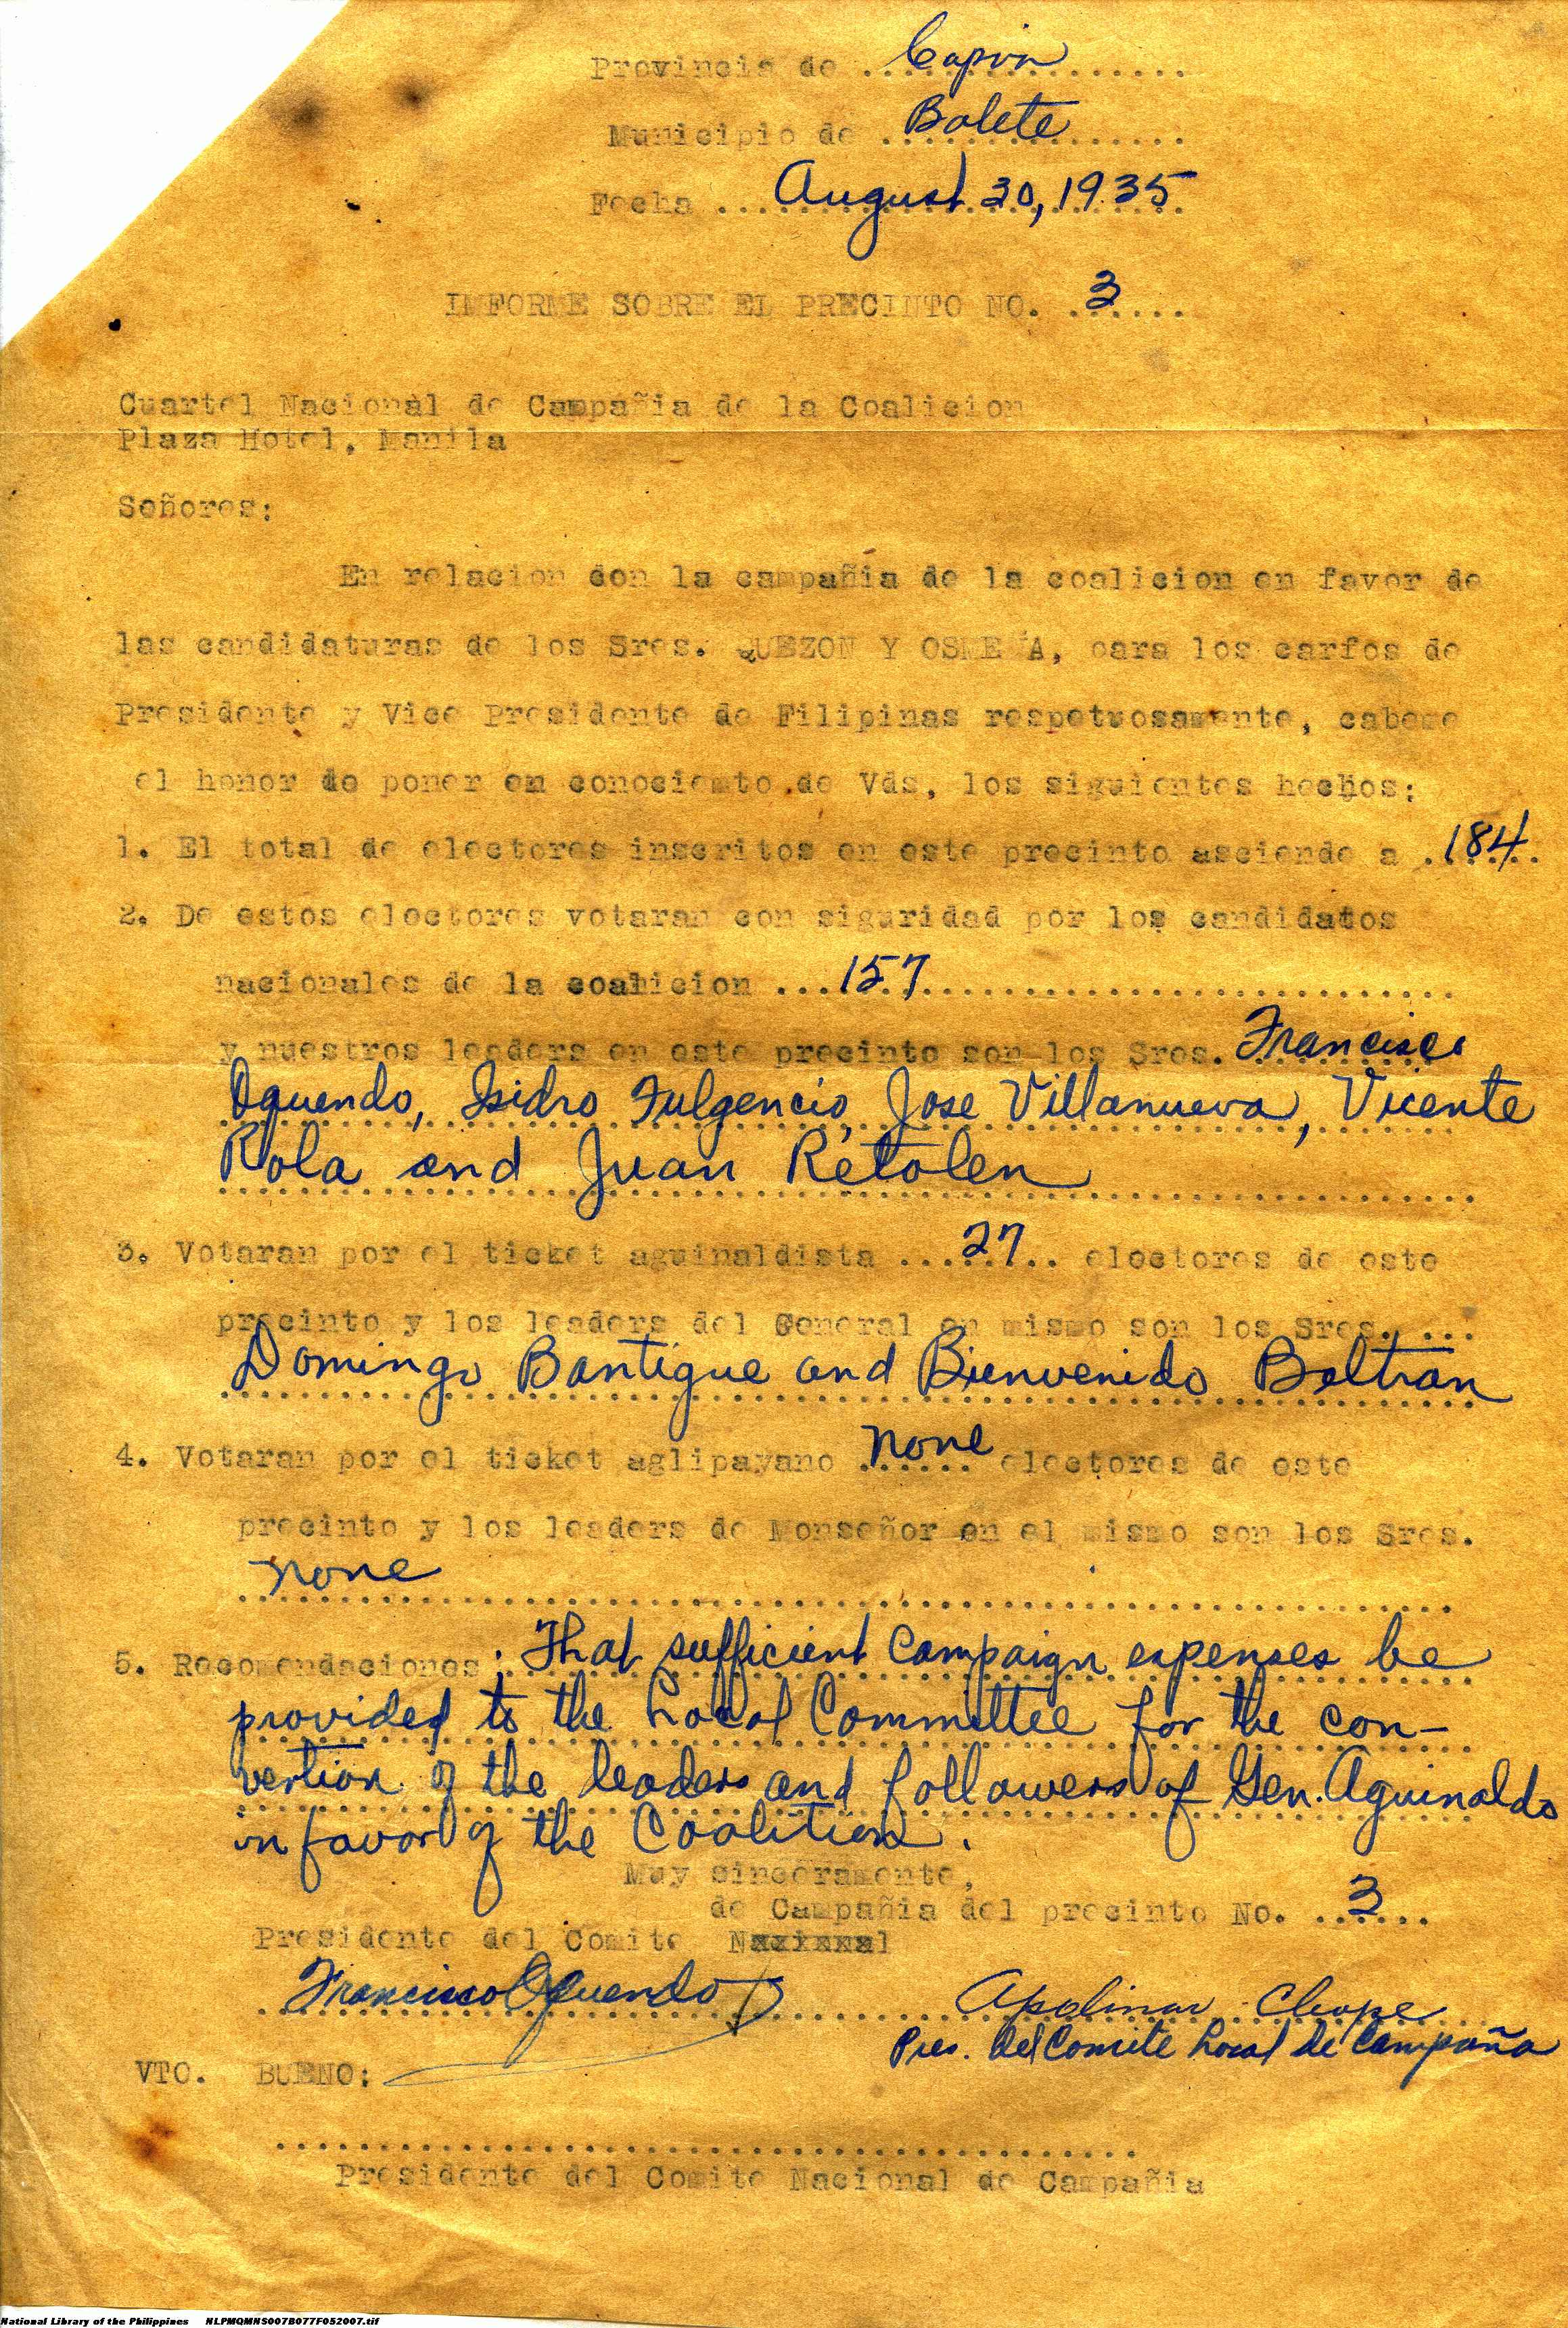 Provincia de ... Capiz
Municipio de ... Balete
Fecha ... August 30, 1935
INFORME SOBRE EL PRECINTO NO. 3
Cuartel Nacional de Campañia de la Coalicion
Plaza Hotel, Manila
Señores:
En relacion con la campañia de la coalicion en favor de
las candidaturas de los Sres. QUEZON Y OSME A, cara los carfos de
Presidente y Vice Presidente de Filipinas respetuosamente, cabeme
el honor de poner en conociemto de Vds, los siguientes hechos:
1. El total de electores inscritos en este precinto asciende a 184
2. De estos electores votaran con siguridad por los candidatos
nacionales de la coalicion ... 157
y nuestros leaders en este precinto son los Sres. Francisco
Oquendo, Isidro Fulgencio, Jose Villanueva, Vicente
Rola and Juan Retolen
3. Votaran por el ticket aguinaldista ... 27 .. electores de este
precinto y los leaders del General en mismo son los Sres. ...
Domingo Bantigue and Bienvenido Beltran
4. Votaran por el ticket aglipayano none electores de este
precinto y los leaders de Monseñor en el mismo son los Sres.
none
5. Recomendaciones: That sufficient Campaign expenses be
provided to the Local Committee for the con-
vertion of the leaders and followers of Gen. Aguinaldo
in favor of the Coalition.
Muy sinceramente,
de Campañia del precinto No. 3
Presidente del Comite
Francisco Oquendo
Apolinar
Pres. del Comite Local de Campaña
VTO. BUENO:
Presidente del Comite Nacional de Campañia
National Library of the Philippines NLPMQMNS007B077F052007.tif